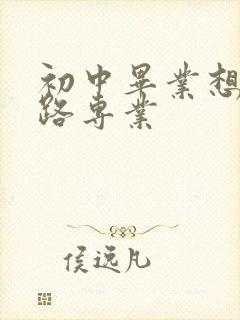 初中畢業想
路專業
侯远凡